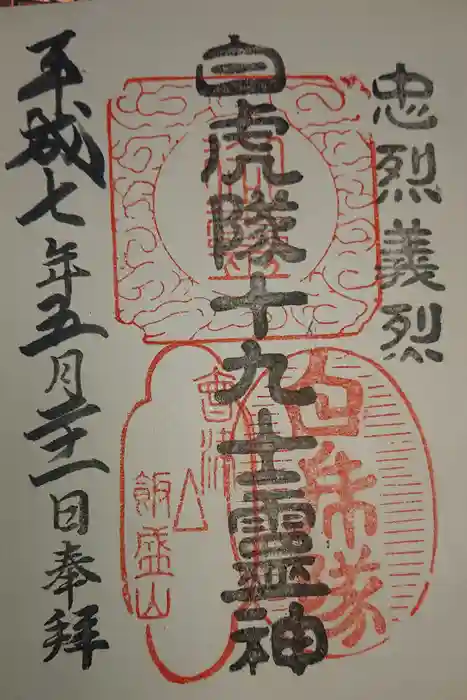 忠烈義烈
白虎隊十九士霊神
平成七年五月二十一日奉拝
白虎隊
會津
飯盛山